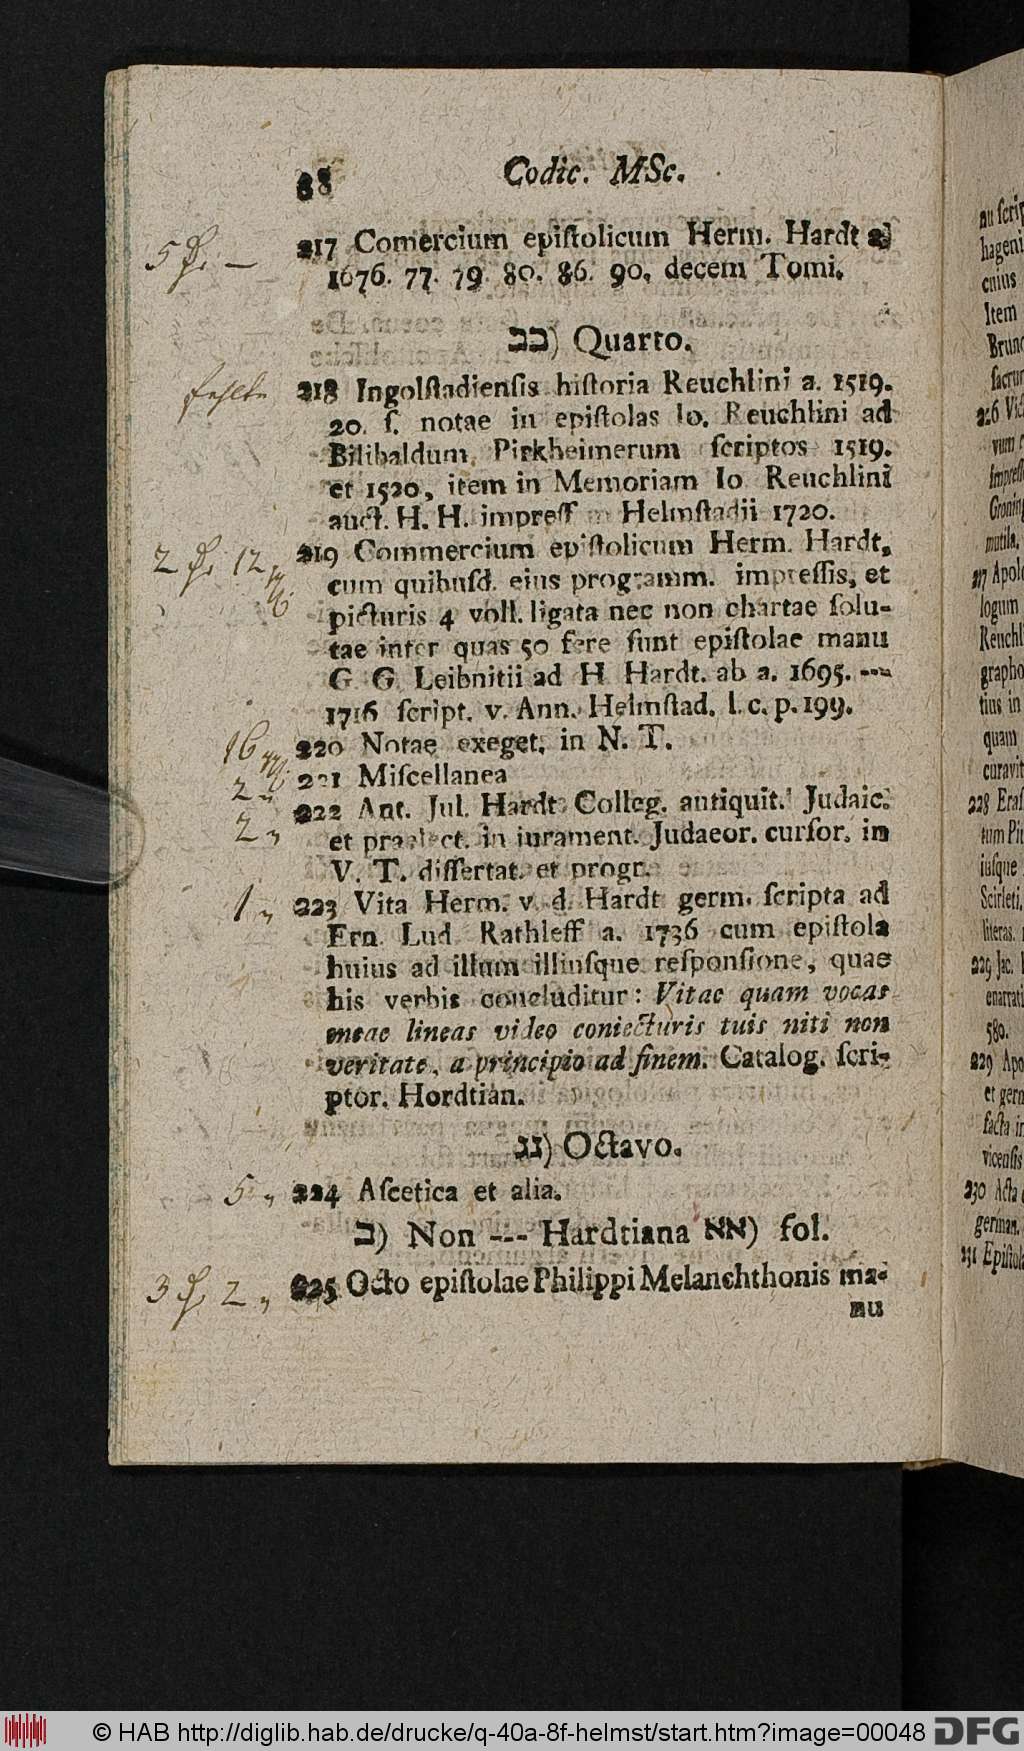 88 Codic. MSc.
5 — 217 Comercium epiſtolicum Herm. Hardt
1676. 77. 79. 80. 86. 90. decem Tomi.
בב) Quarto.
fehlte 218 Ingolſtadienſis hiſtoria Reuchlini a. 1519.
20. ſ. notae in epiſtolas Io. Reuchlini ad
Bilibaldum Pirkheimerum ſcriptos 1519.
et 1520, item in Memoriam Io Reuchlini
auct. H. H. impreſſ Helmſtadii 1720.
2 12 219 Commercium epiſtolicum Herm. Hardt,
cum quibuſd. eius programm. impreſſis, et
picturis 4 voll. ligata nec non chartae ſolu-
tae inter quas 50 fere ſunt epiſtolae manu
G G Leibnitii ad H Hardt. ab a. 1695. ---
1716 ſcript. v. Ann. Helmſtad. l. c. p. 199.
16 220 Notae exeget. in N. T.
2 221 Miſcellanea
2 222 Ant. Jul. Hardt Colleg. antiquit. Judaic.
et praelect. in iurament. Judaeor. curſor. in
V. T. diſſertat. et progr.
1 223 Vita Herm. v. d. Hardt germ. ſcripta ad
Ern. Lud Rathleff a. 1736 cum epiſtola
huius ad illum illiuſque reſponſione, quae
his verbis concluditur: Vitae quam vocas
meae lineas video coniecturis tuis niti non
veritate, a principio ad finem. Catalog. ſcri-
ptor. Hordtian.
גג) Octavo.
5 224 Aſcetica et alia.
ב) Non --- Hardtiana אא) fol.
3 2 225 Octo epiſtolae Philippi Melanchthonis ma-
nu
nu ſcrip
hageni
cuius
Item
Brunc
ſacrum
226 Vic
vum
impreſſ
Groning
mutila.
227 Apolo
logum
Reuchl
grapho
tius in
quam
curavit
228 Eraſ
tum Pi
iuſque
Scirleti.
literas.
229 Jac.
enarrati
580.
229 Apo
et germ
facta in
vicenſis
230 Acta
german.
231 Epiſtol
© HAB http://diglib.hab.de/drucke/q-40a-8f-helmst/start.htm?image=00048 DFG